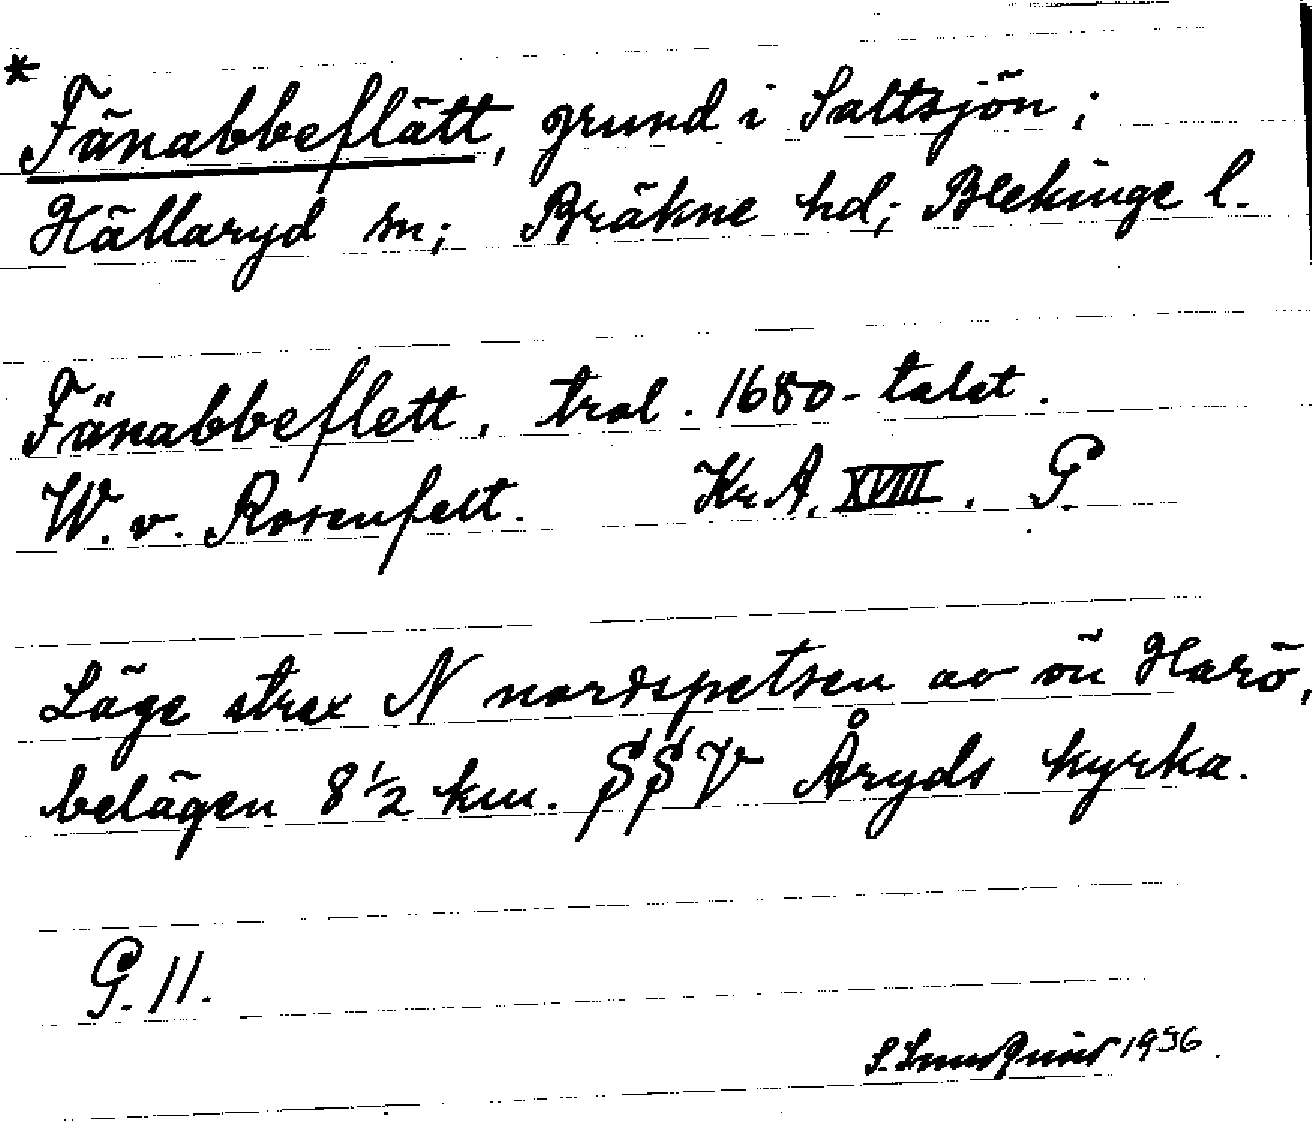 * Fänabbeflätt, grund i Saltsjön;
Hällaryd sn; Bräkne hd; Blekinge l.
Fänabbeflett, trol. 1680-talet.
W. v. Rosenfelt. Kr.A. XVIII. G.
Läge strax N nordspetsen av ön Harö,
belägen 8½ km. SSV Åryds kyrka.
G. 11.
S. 1936.